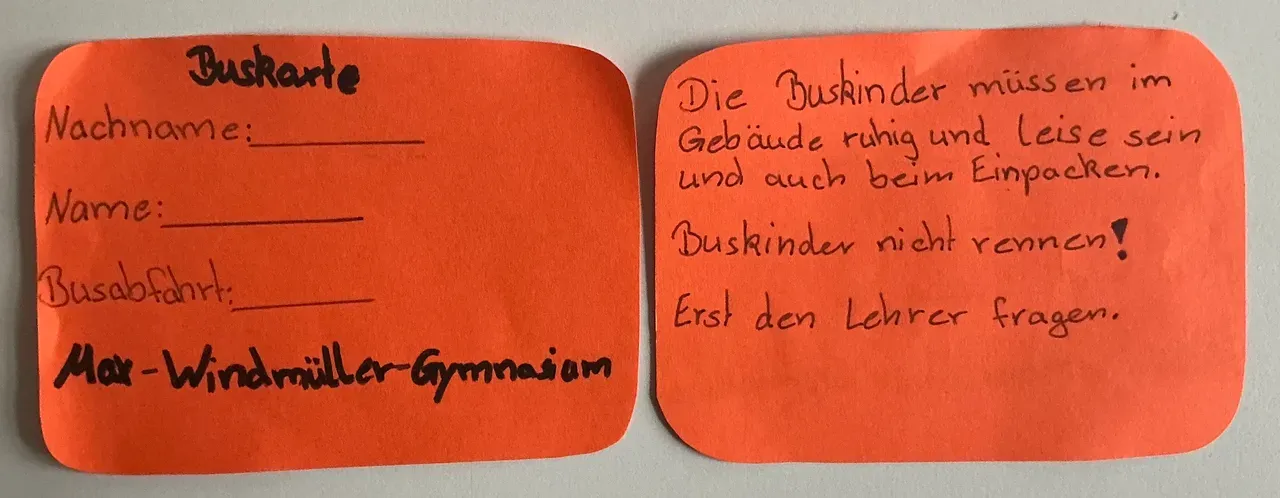 Buskarte
Nachname:
Name:
Busabfahrt:
Max-Windmüller-Gymnasium
Die Buskinder müssen im
Gebäude ruhig und leise sein
und auch beim Einpacken.
Buskinder nicht rennen!
Erst den Lehrer fragen.